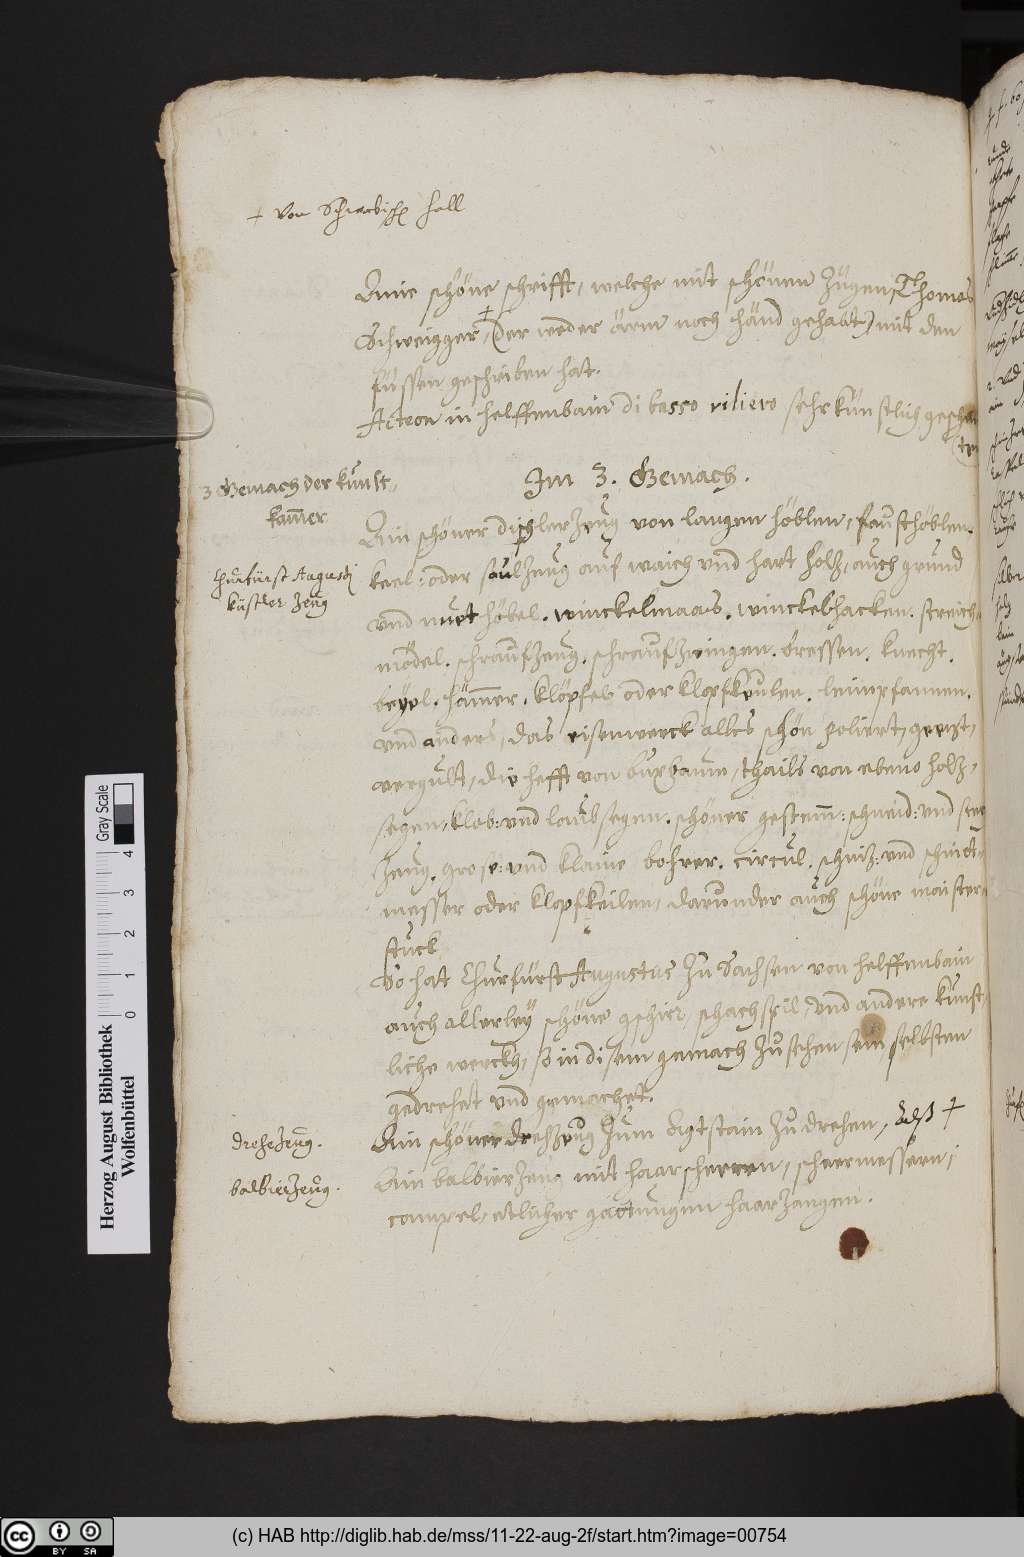 + von Schwebisch Hall
Ainie schöne schrifft, welche mit schönen Zügen Thomas
Schweigger, + (der weder ärm noch händ gehabt) mit den
füssen geschriben hat.
Acteon in helffenbain di basso rilievo sehr künstlich
3 Gemach der kunst-
kam̅er
Im 3. Gemach.
Ain schöner dischlerzeug von langen höblen, fausthöblen.
keel: oder saulzeug auf waich vnd hart holz, auch grund
vnd nuet höbel. winckelmaas. winckelhacken. streich-
churfürst Augusti
Zeug
mödel. schraufzeug. schraufzwingen. bressen. knecht.
beyel. häm̅er. klöpfel oder klopfkeulen. leimpfannen.
vnd anders, das eisenwerck alles schön poliert, geezt,
vergült, die hefft von buxbaum, thails von ebeno holz,
segen, klob: vnd laubsegen. schöner gestem̅: schneid: vnd
Zeug. grose: vnd klaine bohrer. circul. schniz: vnd
messer oder klopfkeilen, darunder auch schöne maister-
stuck
So hat Churfürst Augustus Zu Sachsen von helffenbain
auch allerley schöne gschirr, schachspil, vnd andere kunst-
liche werckh, so in disem gemach Zusehen sein selbsten
gedrehet vnd gemachet.
drehezeug.
Ain schöner drehzeug Zum Agtstain Zu drehen, +
balbierzeug.
Ain balbierzeug mit haarscherren, scheermessern,
campel, etlicher gattungen haarzangen.
Herzog August Bibliothek
Wolfenbüttel
Gray Scale
0 1 2 3 4
cc BY SA
(c) HAB http://diglib.hab.de/mss/11-22-aug-2f/start.htm?image=00754